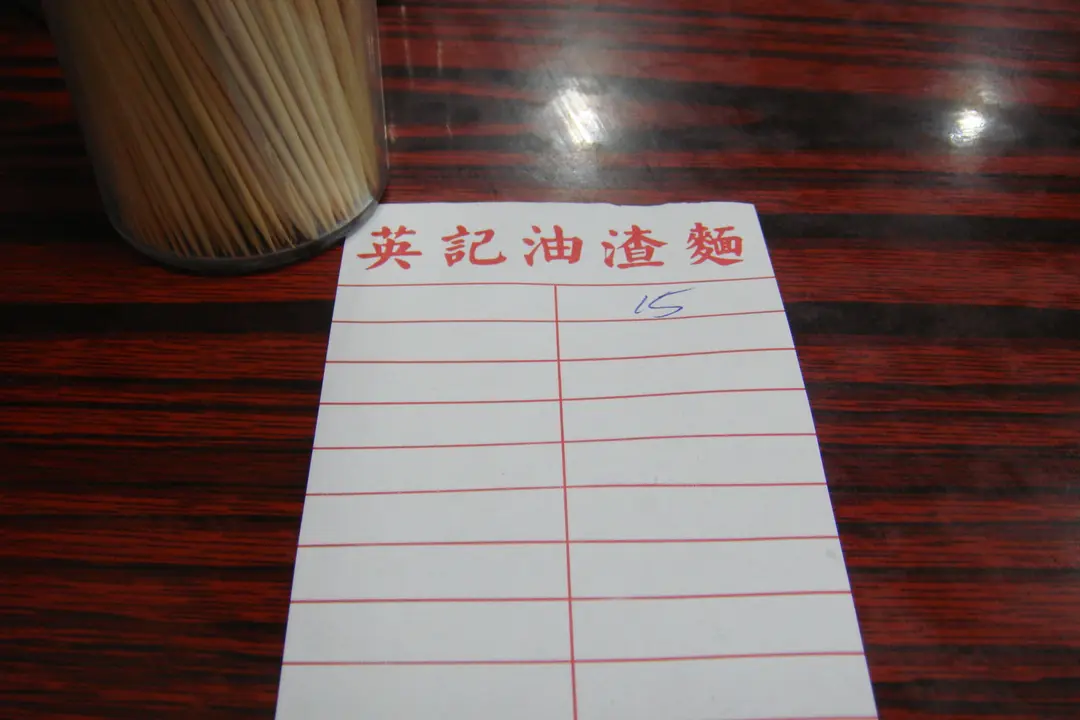 英記油渣麵
15